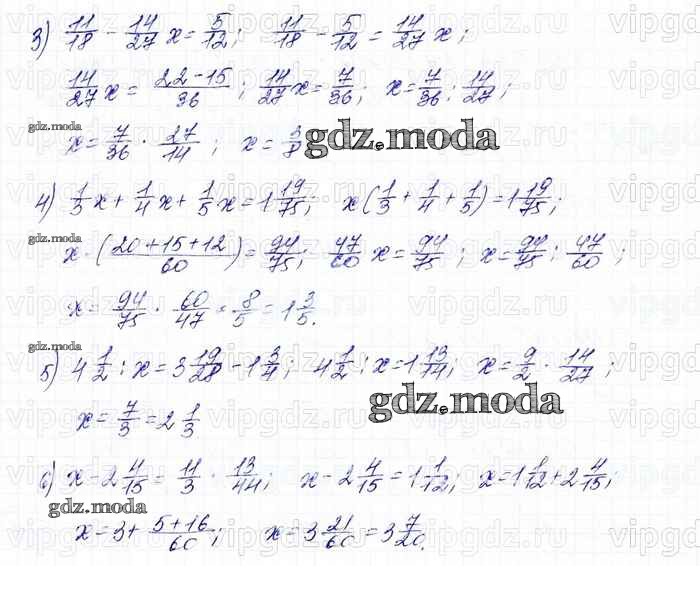 3) 11/18 - 14/27 x = 5/12; 11/18 - 5/12 = 14/27 x;
14/27 x = 22-15/36; 14/27 x = 7/36; x = 7/36 : 14/27;
gdz.moda
x = 7/36 · 27/14; x = 3/8
gdz.moda
4) 1/3 x + 1/4 x + 1/5 x = 1 19/75; x(1/3 + 1/4 + 1/5) = 1 19/75;
gdz.moda
x · (20+15+12/60) = 94/75; 47/60 x = 94/75; x = 94/75 : 47/60;
x = 94/75 · 60/47 = 8/5 = 1 3/5.
gdz.moda
5) 4 1/2 : x = 3 19/28 - 1 3/4; 4 1/2 : x = 1 13/14; x = 9/2 · 14/27;
x = 7/3 = 2 1/3.
gdz.moda
6) x - 2 4/15 = 11/3 · 13/44; x - 2 4/15 = 1 1/12; x = 1 1/12 + 2 4/15;
gdz.moda
x = 3 + 5+16/60; x = 3 21/60 = 3 7/20.
vipgdz.ru